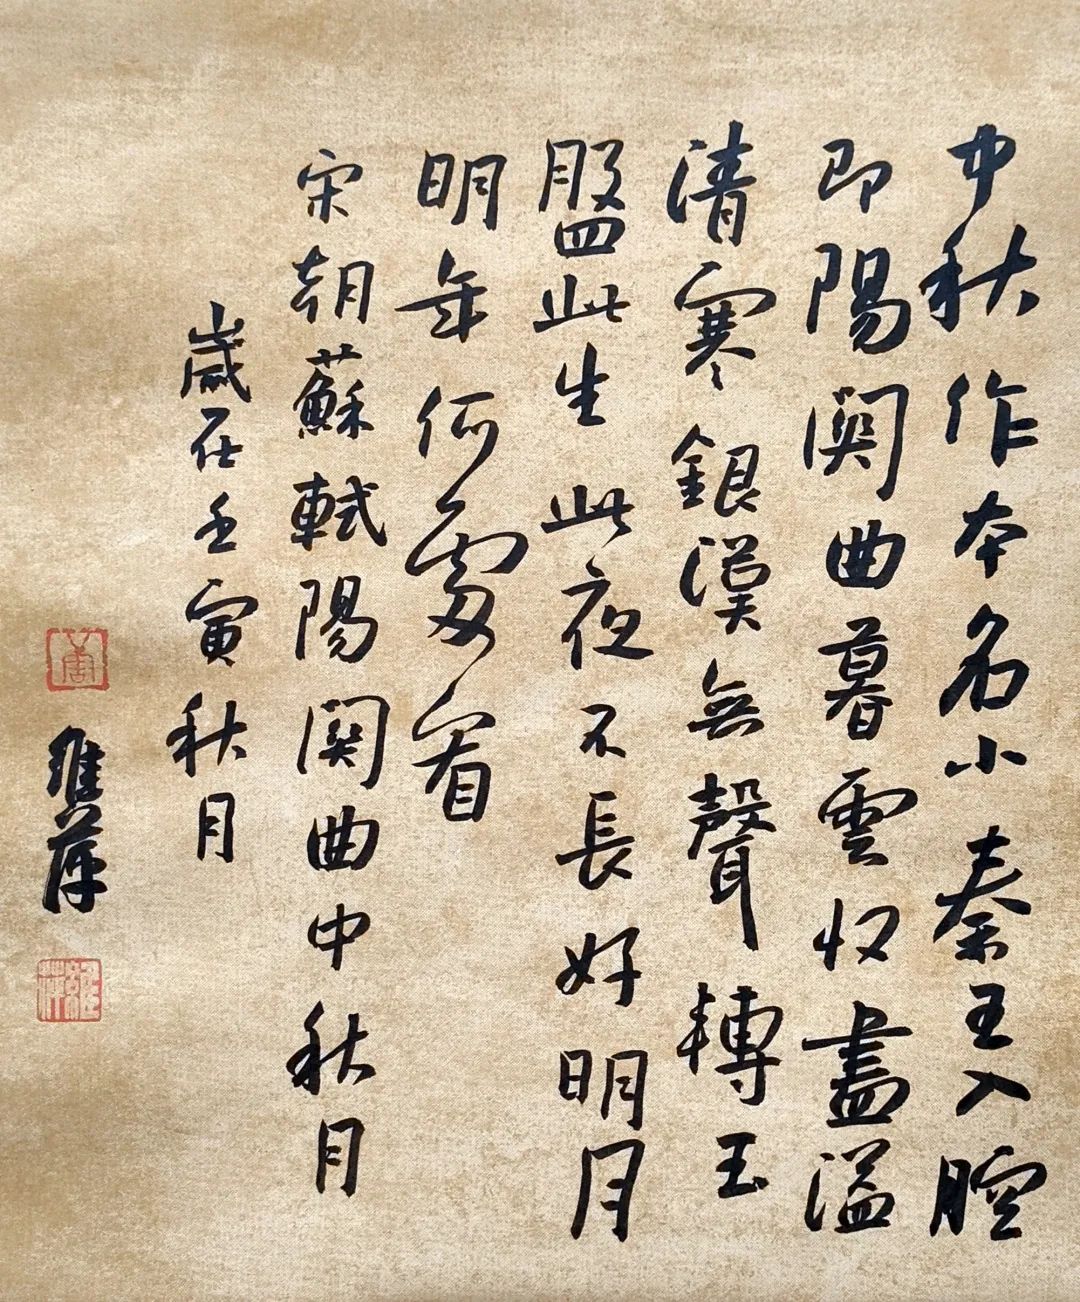 中秋作本名小秦王入腔
即陽関曲暮雲収盡溢
清寒銀漢無聲轉玉
盤此生此夜不長好明月
明年何處看
宋朝蘇軾陽関曲中秋月
歲在壬寅秋月
周
維萍